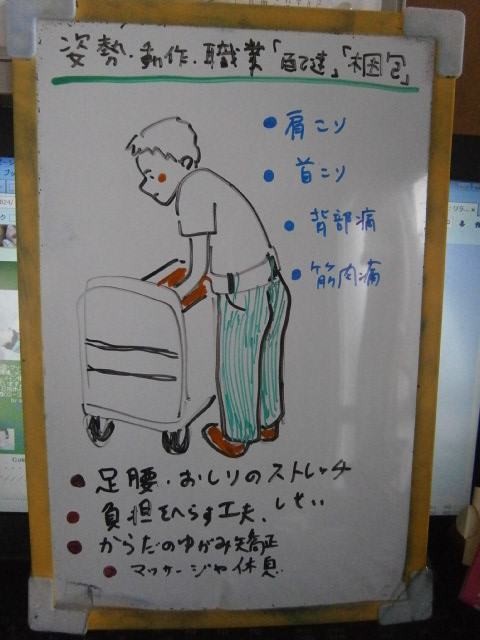 姿勢・動作・職業「配達」「梱包」
● 肩こり
● 首こり
● 背部痛
● 筋肉痛
● 足腰・おしりのストレッチ
● 負担をへらす工夫、しせい
● からだのゆがみ矯正
● マッサージや休息